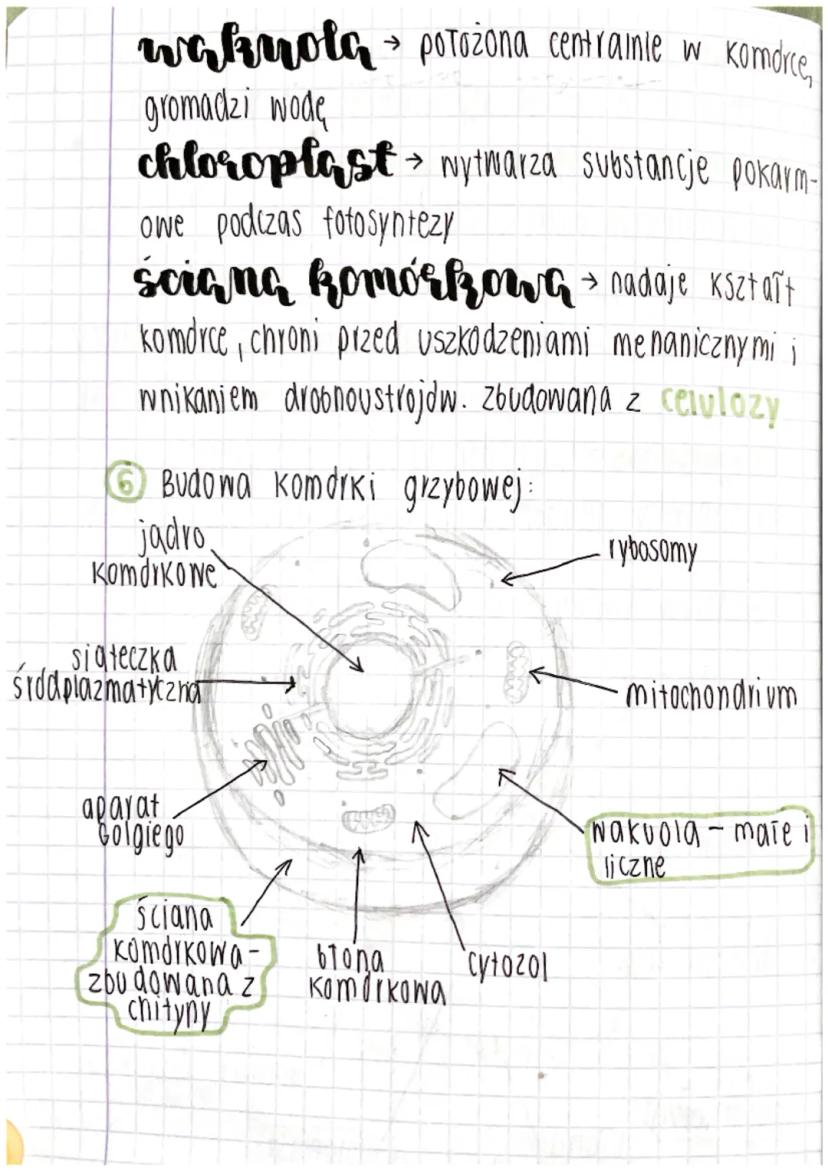 wakuola → położona centralnie w komórce,
gromadzi wodę
chloroplast → wytwarza substancje pokarm-
owe podczas fotosyntezy
ściana komórkowa → nadaje kształt
komórce, chroni przed uszkodzeniami mehanicznymi i
wnikaniem drobnoustrojów. zbudowana z celulozy
6 Budowa komórki grzybowej:
jądro
komórkowe
rybosomy
siateczka
śródplazmatyczna
mitochondrium
aparat
Golgiego
wakuola – małe i
liczne
ściana
komórkowa-
zbudowana z
chityny
błona
komórkowa
cytozol